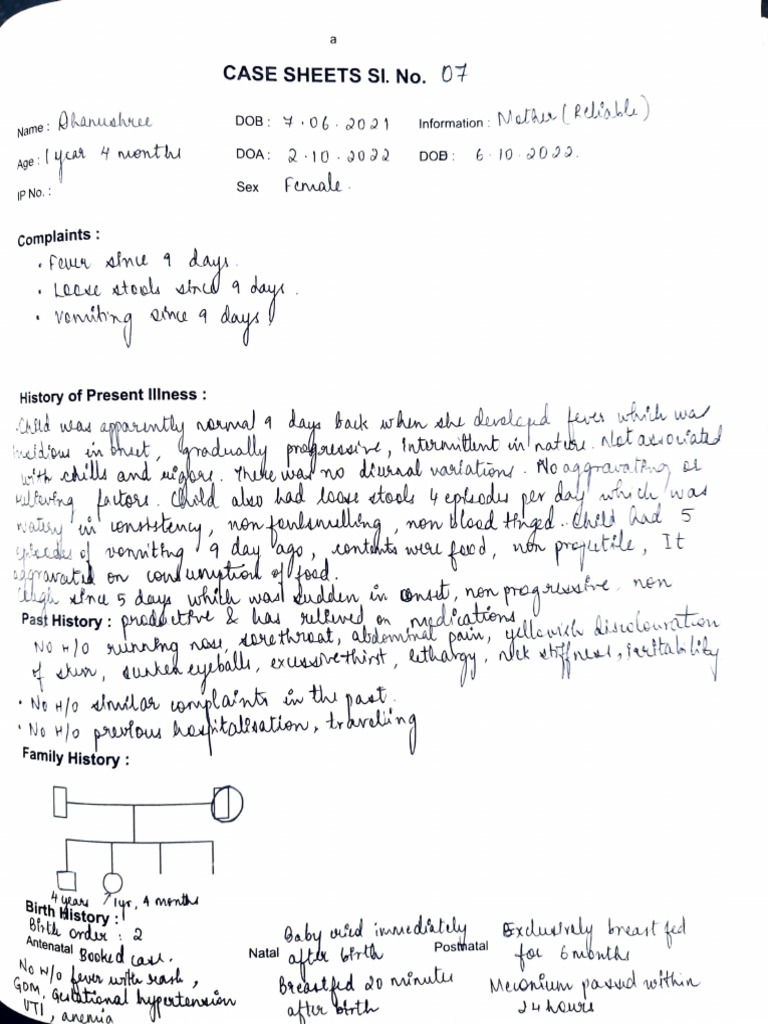 a
CASE SHEETS SI. No. 07
Name : Dhanushree DOB : 7.06.2021 Information : Mother (Reliable)
Age : 1 year 4 months DOA : 2.10.2022 DOB : 6.10.2022.
IP No. : Sex Female.
Complaints :
• Fever since 9 days.
• Loose stools since 9 days.
• Vomiting since 9 days.
History of Present Illness :
Child was apparently normal 9 days back when she developed fever which was
insidious in onset, gradually progressive, intermittent in nature. Not associated
with chills and rigors. There was no diurnal variations. No aggravating or
relieving factors. Child also had loose stools 4 episodes per day which was
watery in consistency, non foulsmelling, non blood tinged. Child had 5
episodes of vomiting 9 day ago, contents were food, non projectile, It
aggravated on consumption of food.
Cough since 5 days which was sudden in onset, non progressive, non
Past History : productive & has relieved on medications
No H/O running nose, sorethroat, abdominal pain, yellowish discolouration
of skin, sunken eyeballs, excessive thirst, lethargy, neck stiffness, irritability
• No H/O similar complaints in the past.
• No H/O previous hospitalisation, traveling
Family History :
4 years 1yr, 4 months
Birth History :
Birth order : 2
Antenatal Booked case.
No H/O fever with rash,
GDM, Gestational hypertension
UTI, anemia
Natal Baby cried immediately
after birth
Breastfed 20 minutes
after birth
Postnatal Exclusively breast fed
for 6 months
Meconium passed within
24 hours